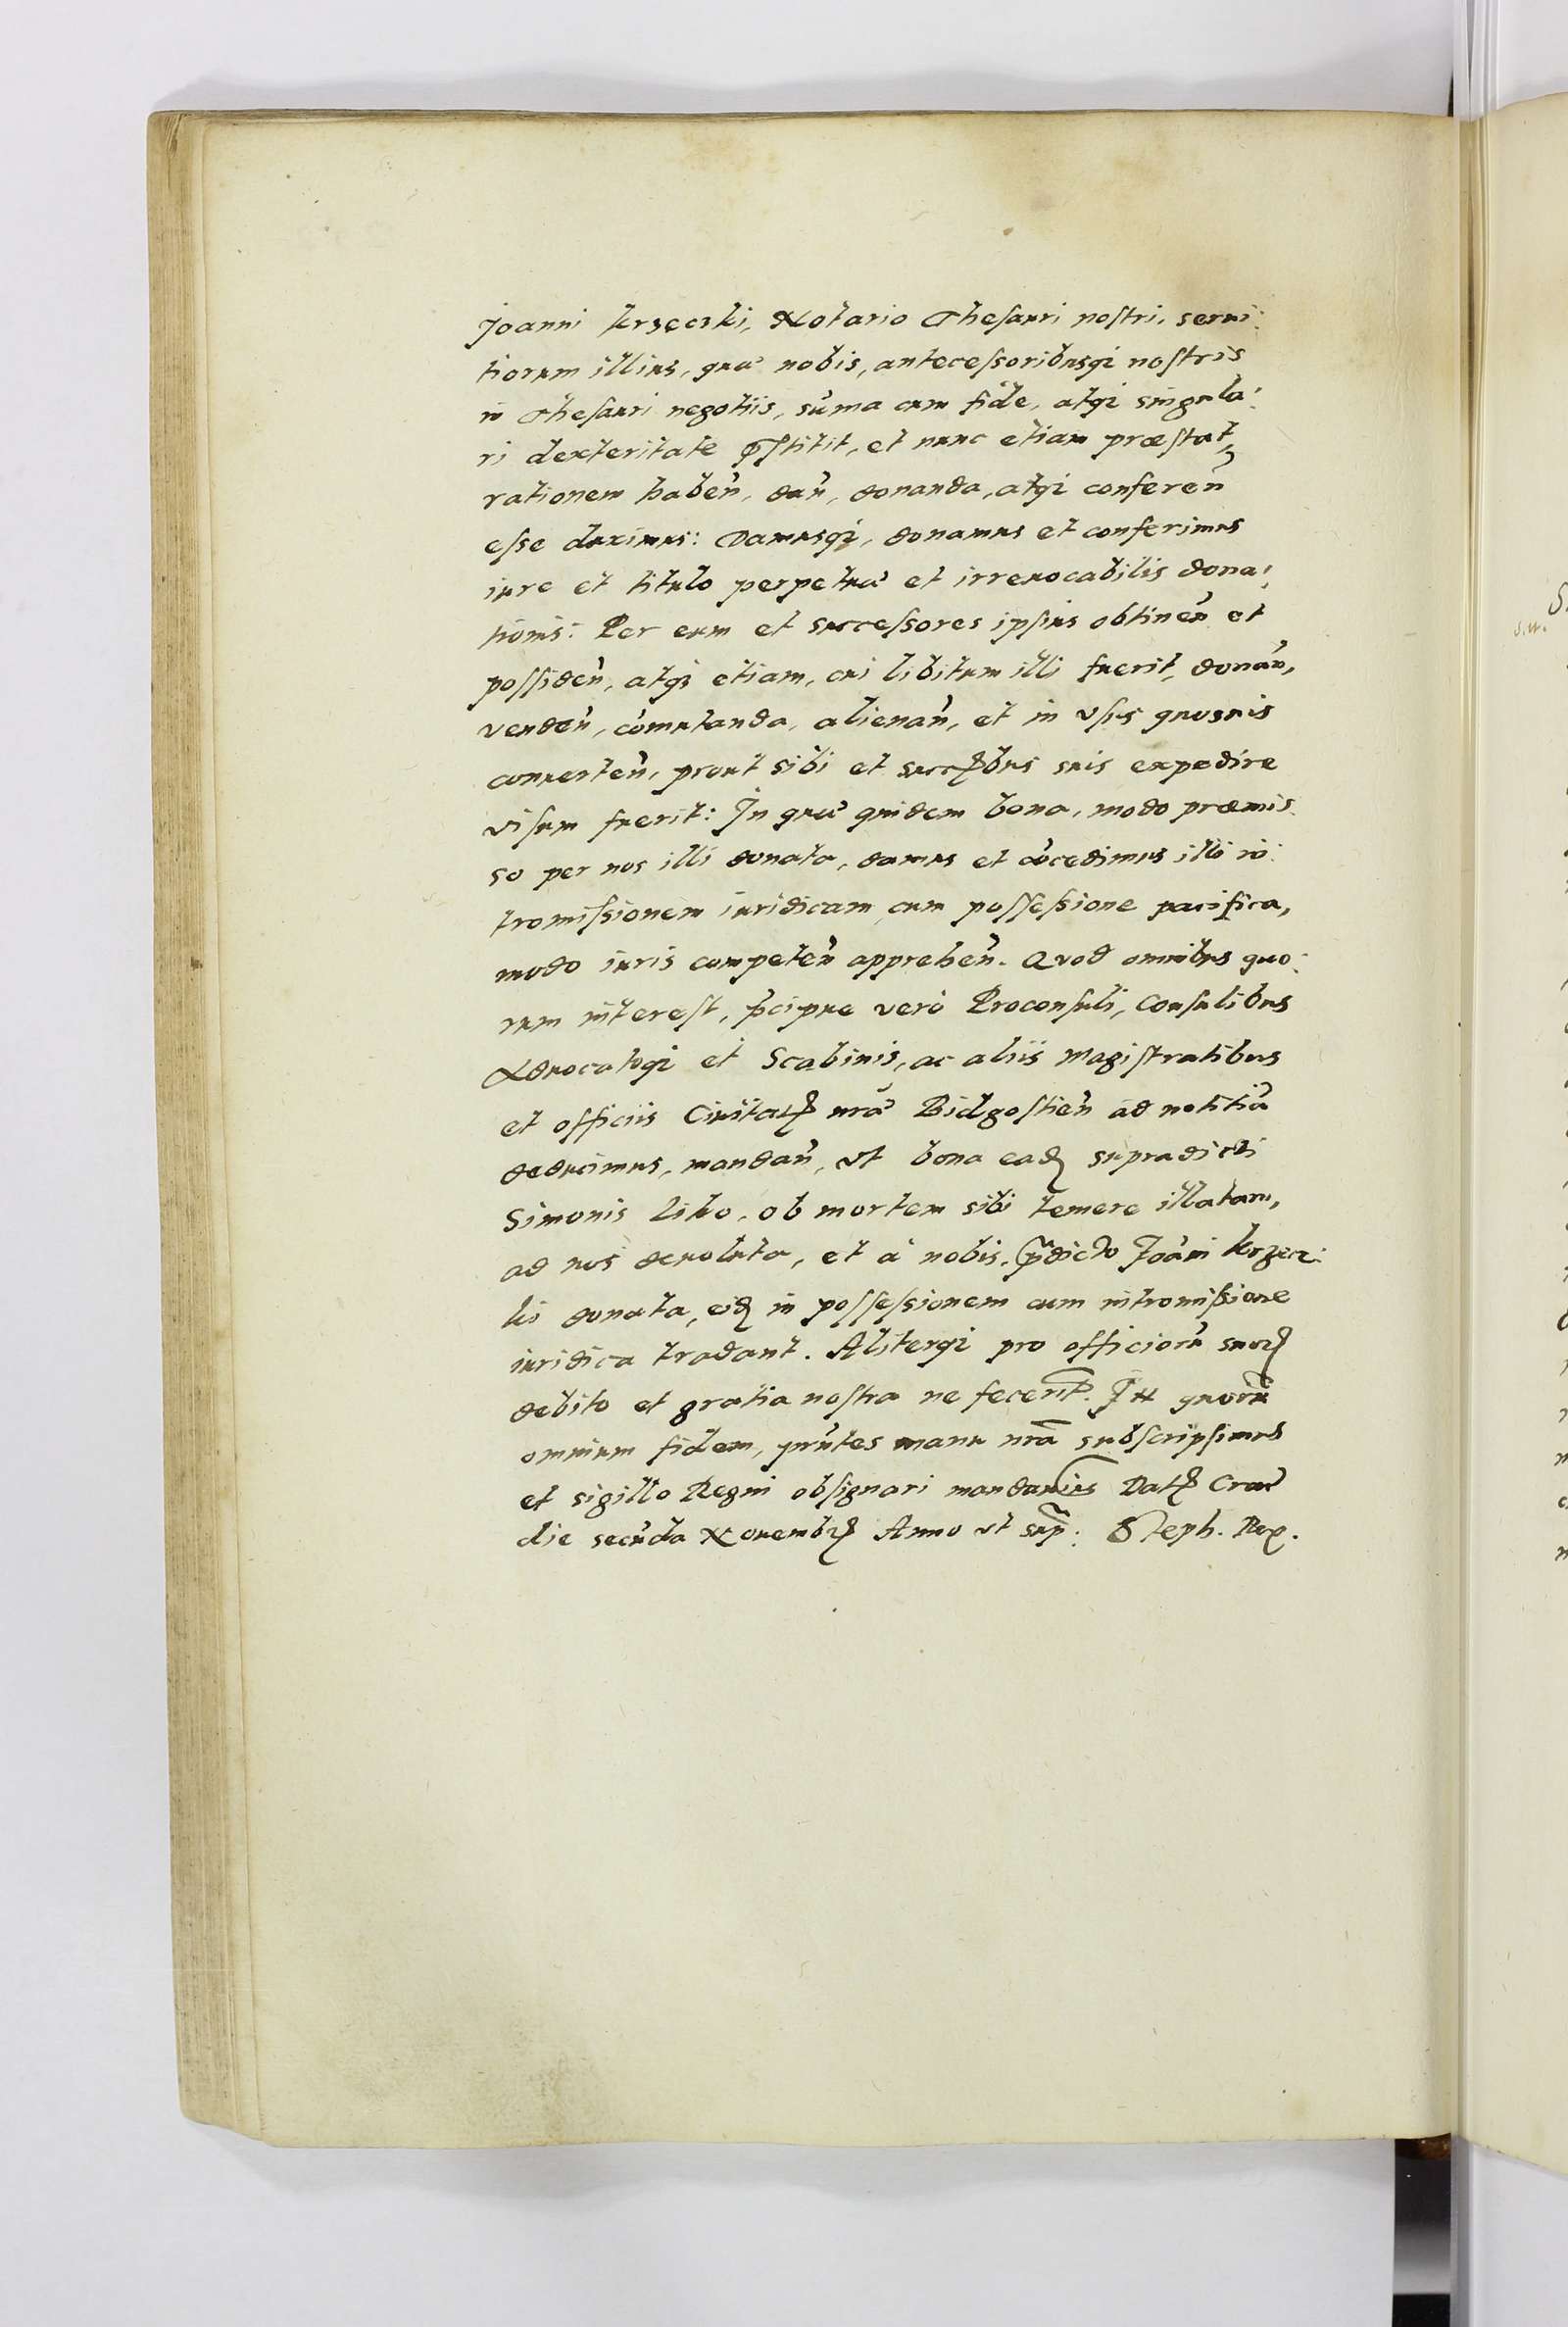 Joanni krzęczki, Notario Thesauri nostri, serui:
tiorum illius, quæ nobis, antecessoribusq; nostris
in Thesauri negotiis, sūma cum fide, atq; singula:
ri dexteritate p̄stitit, et nunc etiam præstat,
rationem habeñ, dañ, donanda, atq; confereñ
esse duximus: Damusq;, donamus et conferimus
iure et titulo perpetuæ et irreuocabilis dona:
tionis: Per eum et successores ipsius obtineñ et
possideñ, atq; etiam, cui libitum illi fuerit, donañ,
vendeñ, cōmutanda, alienañ, et in vsus quosuis
conuerteñ, prout sibi et succꝭbus suis expedire
visum fuerit: In quæ quidem bona, modo præmis:
so per nos illi donata, damus et cōcedimus illi in:
tromissionem iuridicam cum possessione pacifica,
modo iuris competeñ appreheñ. Quod omnibus quo:
rum interest, p̄cipue verò Proconsuli, Consulibus
Aduocatoq; et Scabinis, ac aliis Magistratibus
et officiis Ciuitatꝭ nr̄æ Bidgostieñ ad notitiā
deducimus, mandañ, vt bona eadꝫ supradicti
Simonis Liko, ob mortem sibi temere illatam,
ad nos deuoluta, et à nobis, p̄dicto Joāni krzęcz:
ki donata, eidꝫ in possessionem cum intromissione
iuridica tradant. Aliterq; pro officiorū suorꝫ
debito et gratia nostra ne fecerīt. In quorū
omnium fidem, pn̄tes manu nr̄a subscripsimus
et sigillo Regni obsignari mandauimus Datꝭ Crac̄
die secūda Nouembrꝭ Anno vt sup̄: Steph. Rex.